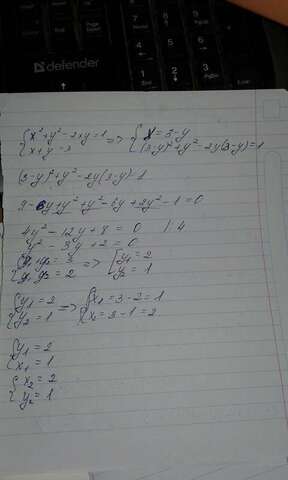 defender
{x²+y²-2xy=1 => {x=3-y
{x+y=3 {(3-y)²+y²-2y(3-y)=1
(3-y)²+y²-2y(3-y)=1
9-6y+y²+y²-6y+2y²-1=0
4y²-12y+8=0 |:4
y²-3y+2=0
{y₁+y₂=3 => {y₁=2
{y₁y₂=2 {y₂=1
{y₁=2 => {x₁=3-2=1
{y₂=1 {x₂=3-1=2
{y₁=2
{x₁=1
{x₂=2
{y₂=1